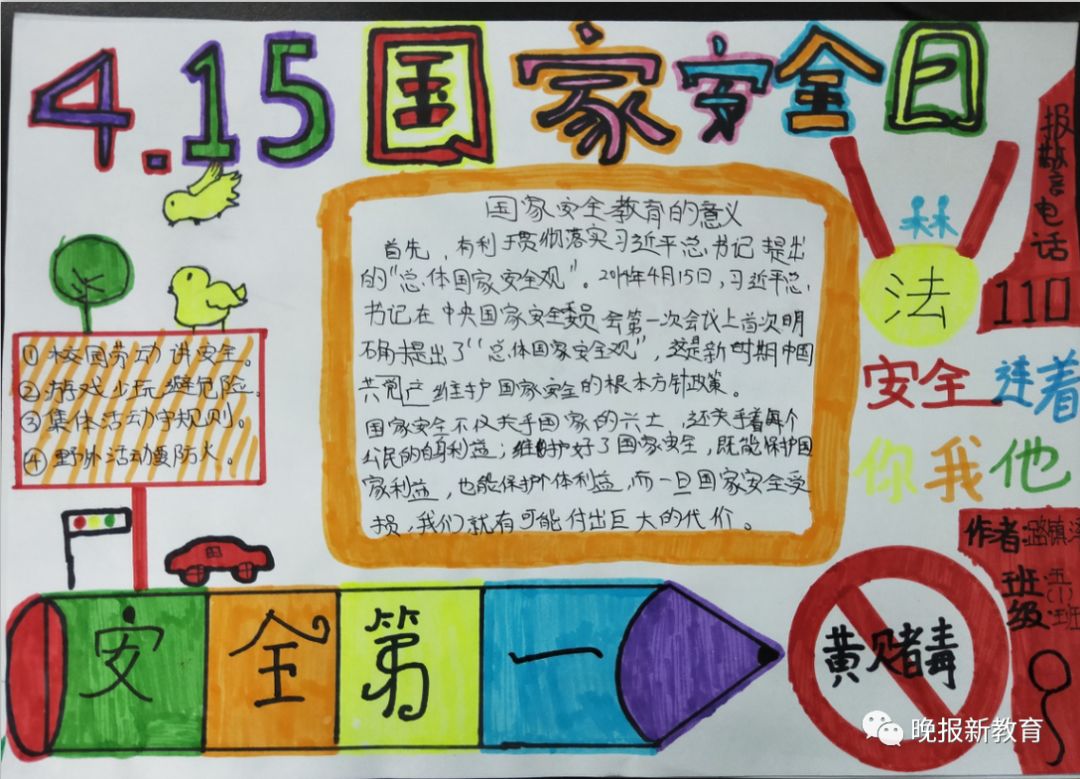 4.15国家安全日
报警电话
110
国家安全教育的意义
首先，有利于贯彻落实习近平总书记提出
的“总体国家安全观”。2014年4月15日，习近平总
书记在中央国家安全委员会第一次会议上首次明
确提出了“总体国家安全观”，这是新时期中国
共党产维护国家安全的根本方针政策。
国家安全不仅关乎国家的兴亡，还关乎着每个
公民的自身利益；维护好了国家安全，既能保护国
家利益，也能保护个体利益，而一旦国家安全受
损，我们就有可能付出巨大的代价。
法
安全连着
你我他
①校园劳动讲安全。
②游戏少玩避危险。
③集体活动守规则。
④野外活动要防火。
作者:路镇
班级:五(1)班
安全第一
黄赌毒
晚报新教育